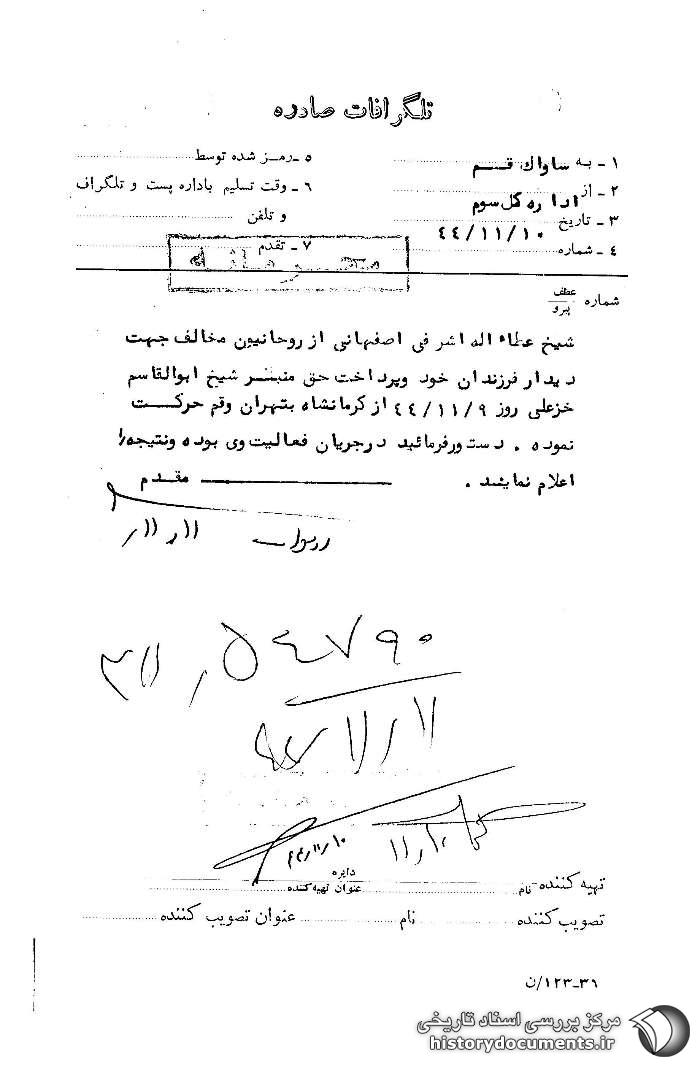 تلگرافات صادره
۱ - به ساواك قم
۲ - از اداره كل سوم
۳ - تاریخ ۴۴/۱۱/۱۰
۴ - شماره
۵ - رمز شده توسط
۶ - وقت تسلیم باداره پست و تلگراف
و تلفن
۷ - تقدم
شماره عطف
پیرو
شیخ عطاء اله اشرفی اصفهانی از روحانیون مخالف جهت
دیدار فرزندان خود وپرداخت حق منبر شیخ ابوالقاسم
خزعلی روز ۴۴/۱۱/۹ از کرمانشاه بتهران وقم حرکت
نموده . دستورفرمائید درجریان فعالیت وی بوده ونتیجه را
اعلام نمایند . مقدم
۱۱ر۱۱ر
۳۱۱ر۵۴۷۹۰
۴۴ر۱۱ر۱۰
تهیه کننده - نام
دایره
عنوان تهیه کننده
تصویب کننده نام عنوان تصویب کننده
۳۶-۱۲۳/ن
مرکز بررسی اسناد تاریخی
historydocuments.ir